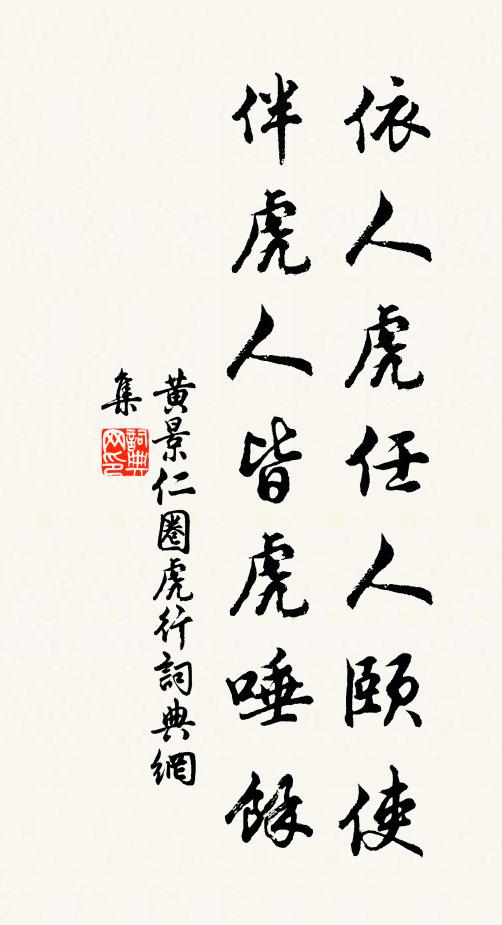 依人虎任人頤使
伴虎人皆虎唾餘
黄景仁圈虎行詞典網
集
詞典网印